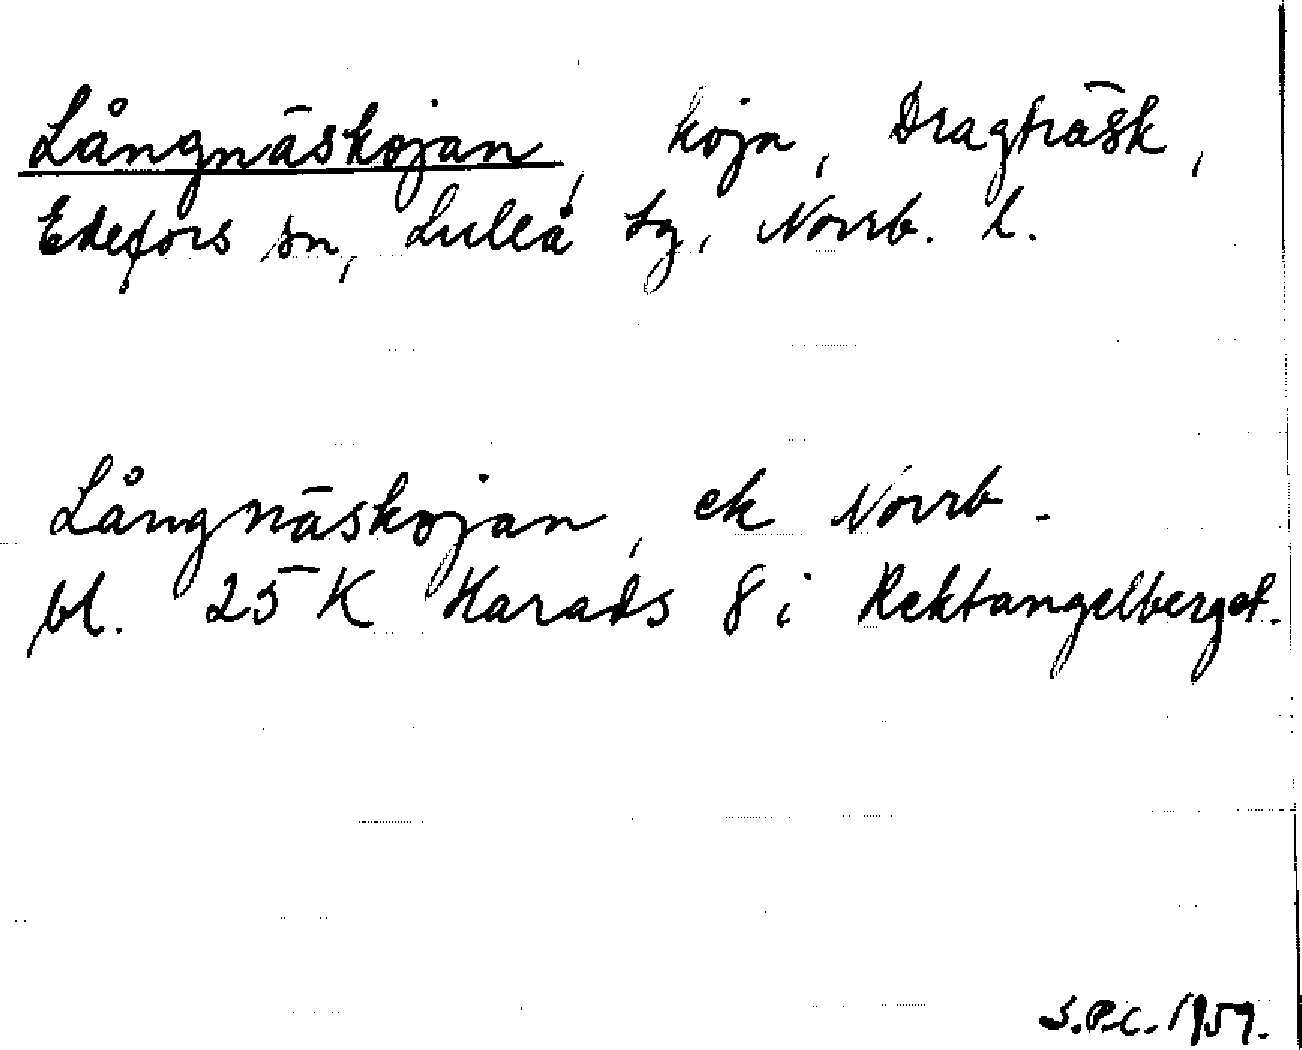 Långnäskojan, koja, Dragträsk,
Edefors sn, Luleå tg, Norrb. l.
Långnäskojan, ek Norrb.
bl. 25 K Harads 8 i Rektangelberget.
S.P.C. 1959.